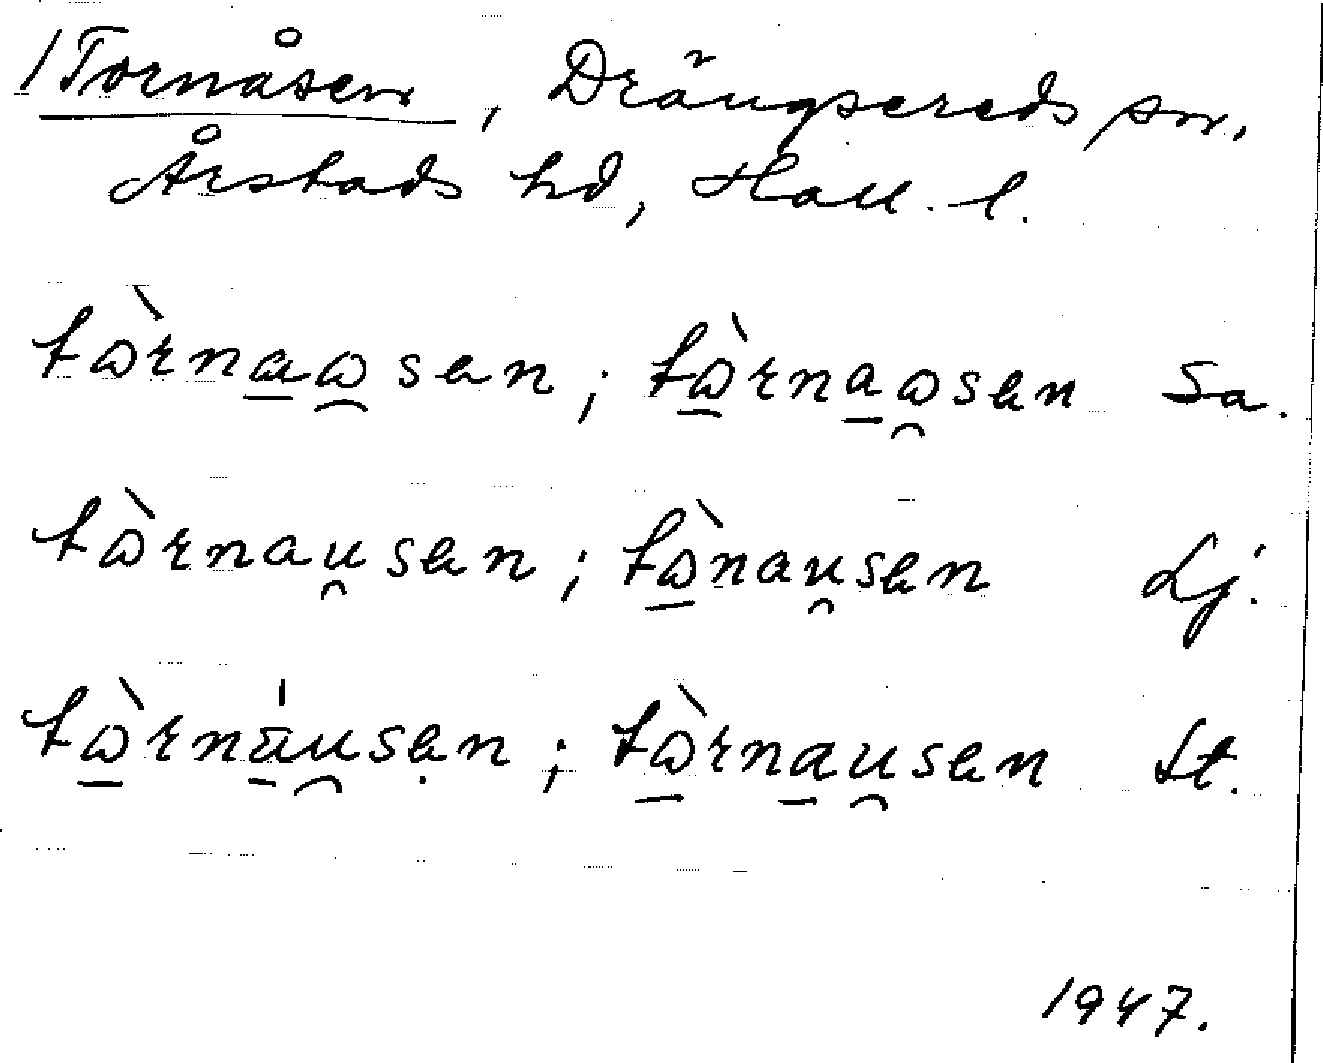 /Tornåsen, Drängsereds sn,
Årstads hd, Hall. l.
tɷ̀rna̲ɷ̯sen; tɷ̲̀rna̲ɷ̯sen Sa.
tɷ̀rnau̯sen; tɷ̲̀nau̯sen Lj.
tɷ̲̀rná̲u̯sẹn; tɷ̲̀rna̲u̯sen St.
1947.